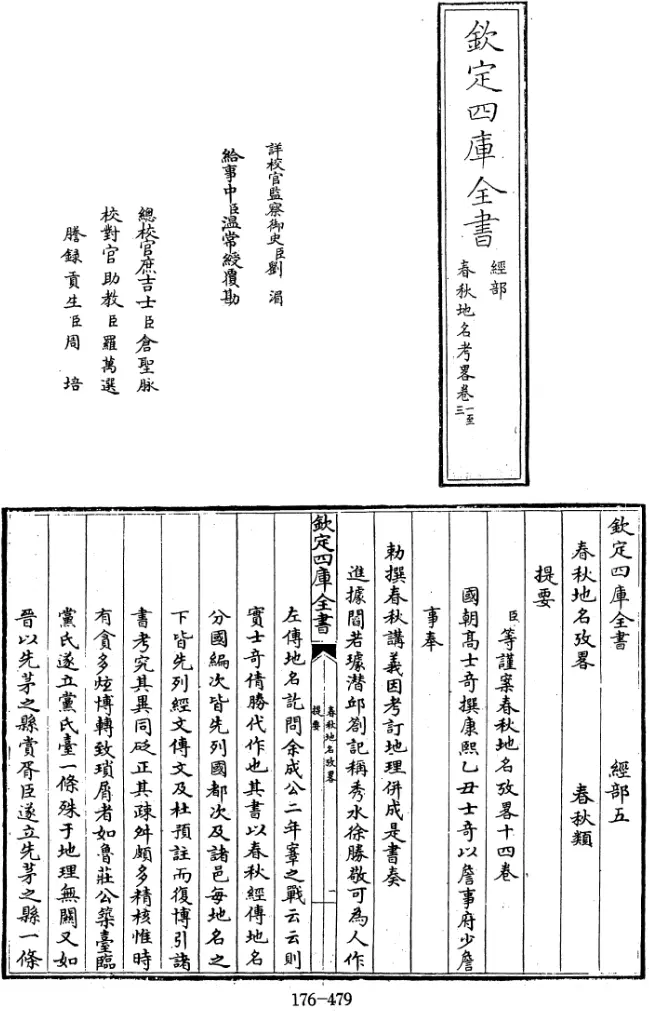 欽定四庫全書
經部
春秋地名考畧卷一至三
詳校官監察御史臣劉湄
給事中臣溫常綬覆勘
總校官庶吉士臣倉聖脉
校對官助教臣羅萬選
謄錄貢生臣周培
欽定四庫全書 經部五
春秋地名攷畧 春秋類
提要
臣等謹案春秋地名攷畧十四卷
國朝高士奇撰康熙乙丑士奇以詹事府少詹
事奉
勅撰春秋講義因考訂地理併成是書奏
進據閻若璩潛邱劄記稱秀水徐勝敬可為人作
欽定四庫全書
春秋地名攷畧
提要
一
左傳地名訖問余成公二年鞌之戰云云則
實士奇倩勝代作也其書以春秋經傳地名
分國編次皆先列國都次及諸邑每地名之
下皆先列經文傳文及杜預註而復博引諸
書考究其異同砭正其疎舛頗多精核惟時
有貪多炫博轉致瑣屑者如魯莊公築臺臨
黨氏遂立黨氏臺一條殊于地理無關又如
晉以先茅之縣賞胥臣遂立先茅之縣一條
176-479